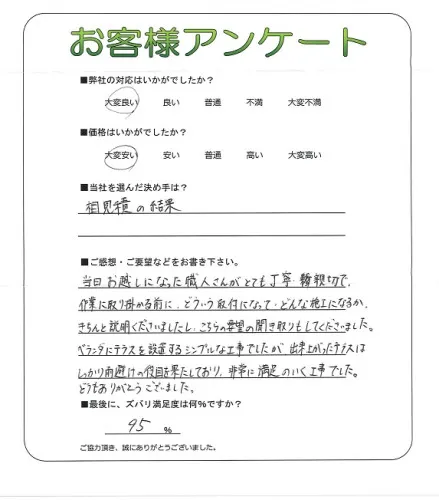 お客様アンケート
■弊社の対応はいかがでしたか?
大変良い 良い 普通 不満 大変不満
■価格はいかがでしたか?
大変安い 安い 普通 高い 大変高い
■当社を選んだ決め手は?
相見積の結果
■ご感想・ご要望などをお書き下さい。
当日お越しになった職人さんがとても丁寧・親切で、
作業に取り掛かる前に、どういう取付になって・どんな施工になるか、
きちんと説明くださいましたし、こちらの要望の聞き取りもしてくださいました。
ベランダにテラスを設置するシンプルな工事でしたが、出来上がったテラスは
しっかり雨避けの役目を果たしており、非常に満足のいく工事でした。
どうもありがとうございました。
■最後に、ズバリ満足度は何%ですか?
95 %
ご協力頂き、誠にありがとうございました。